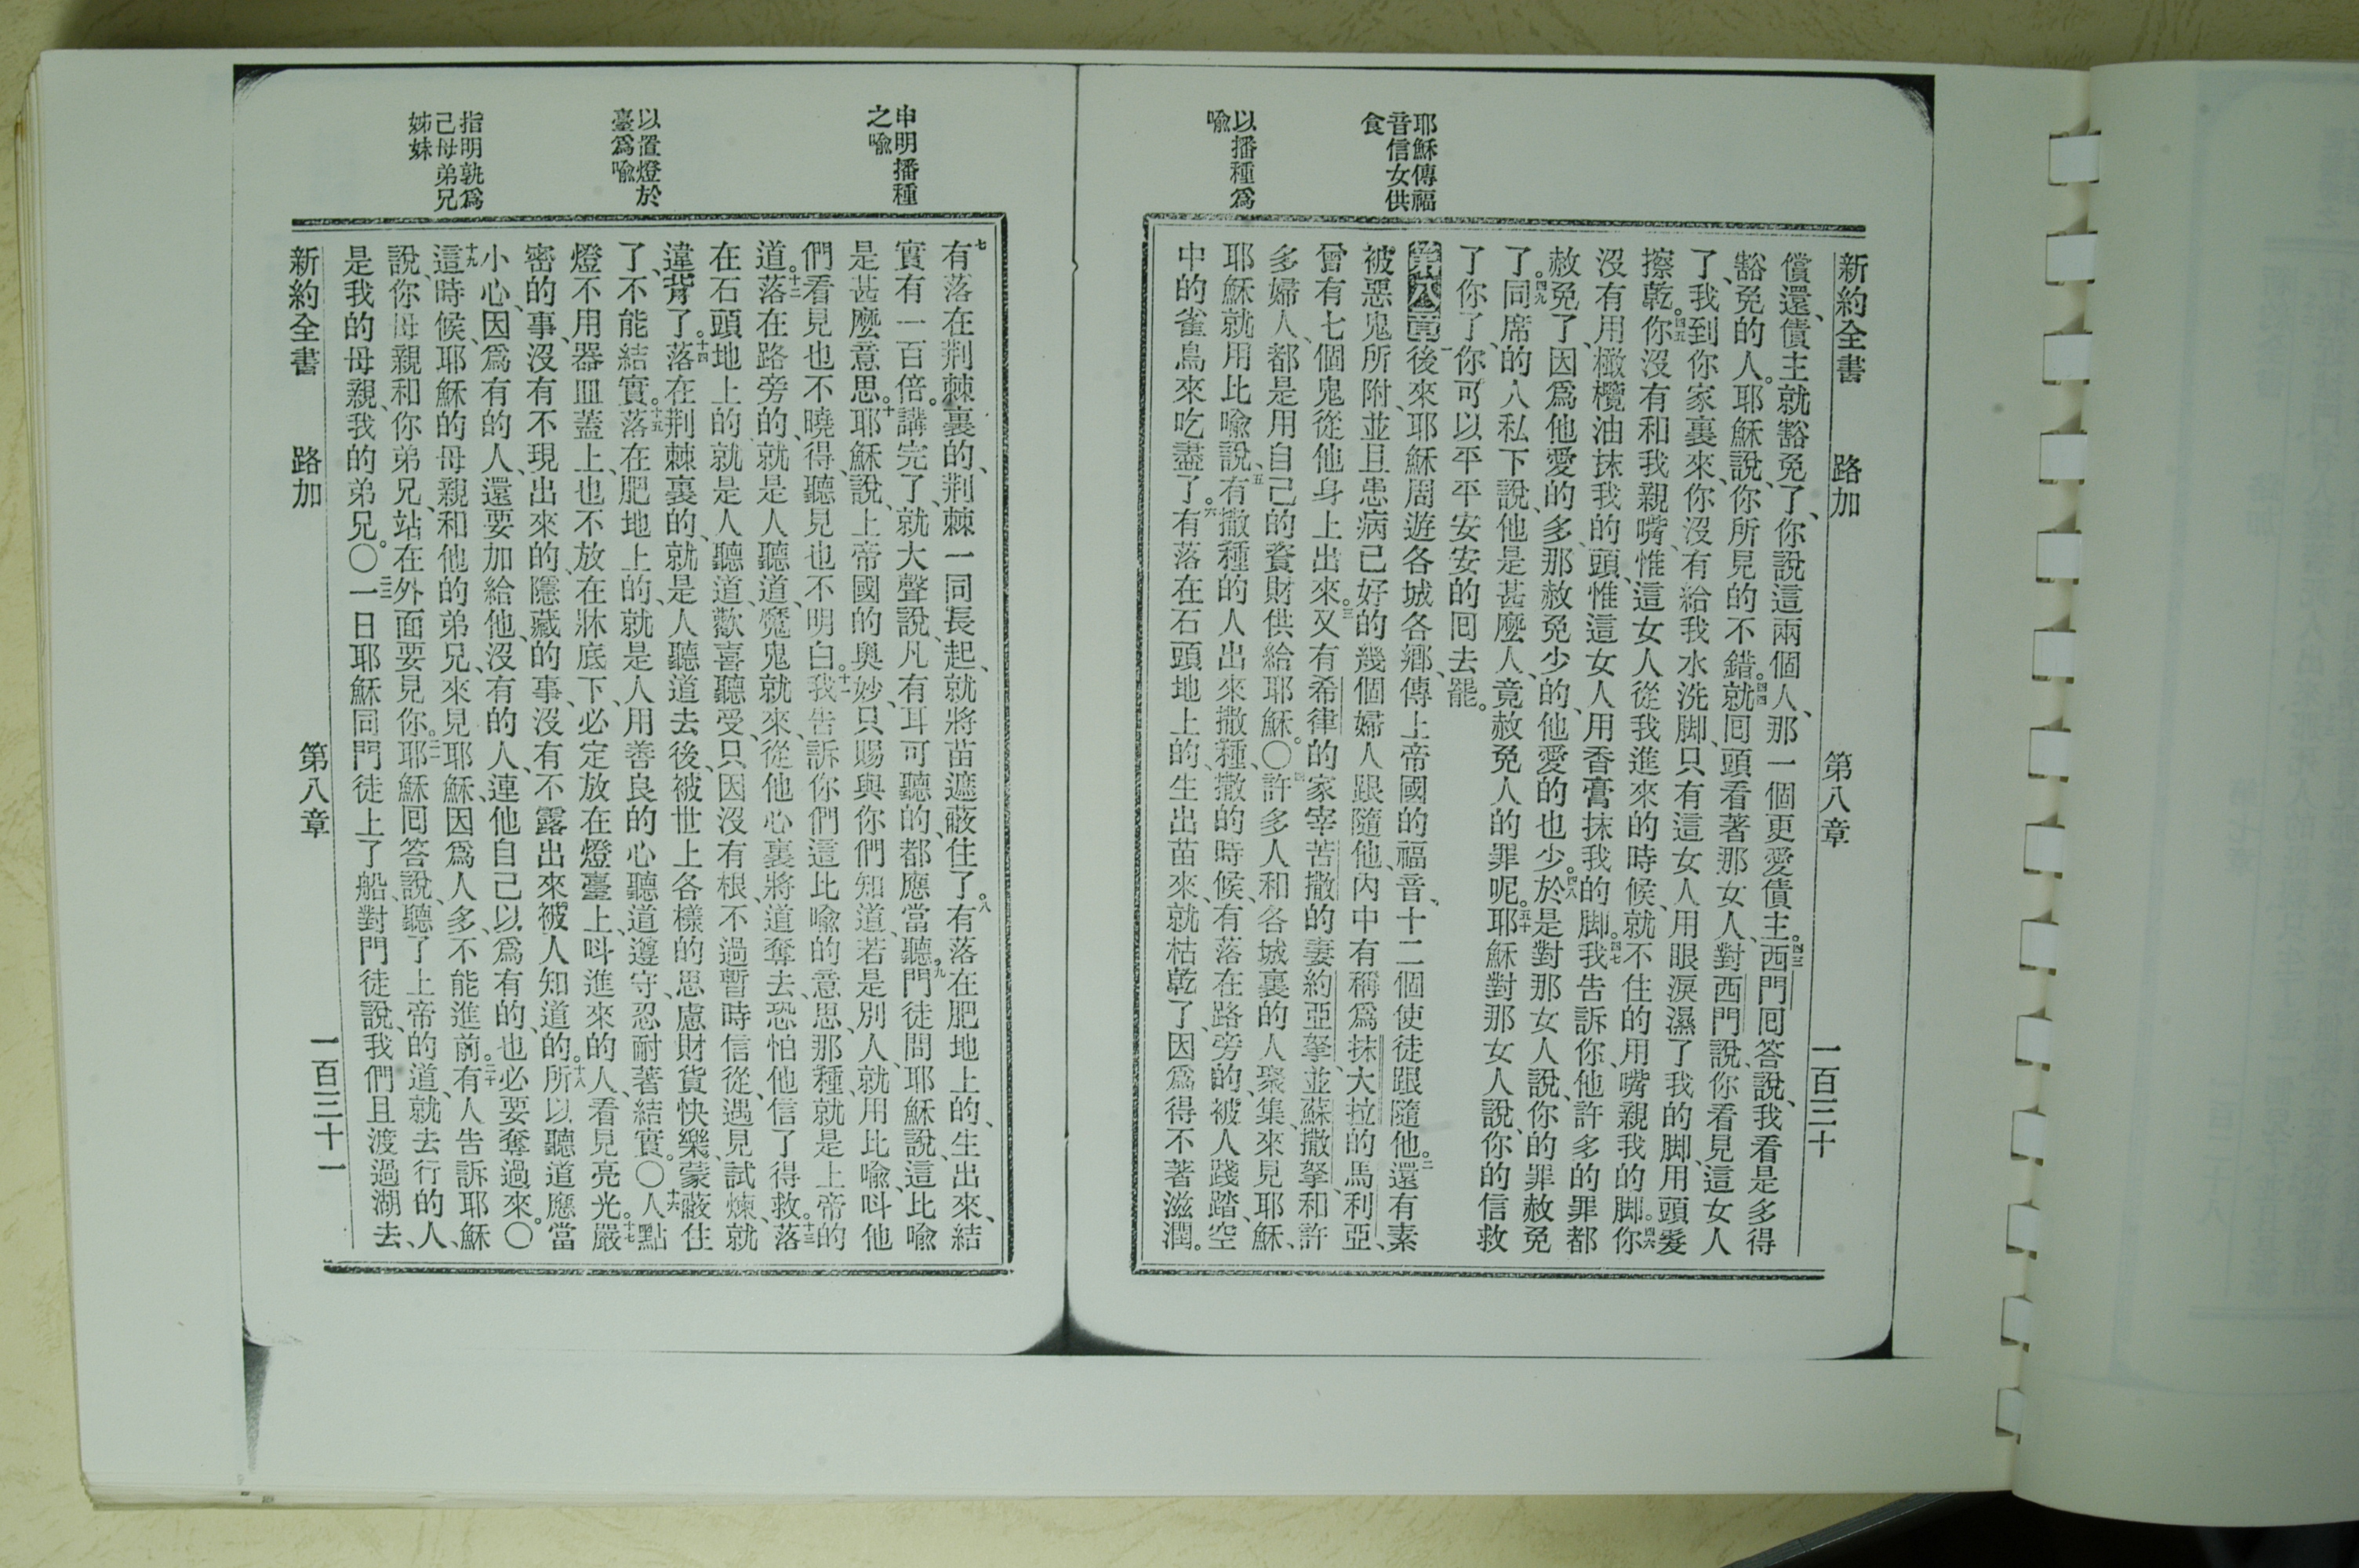 耶穌傳福
音信女供
食
以播種爲
喩
新約全書 路加 第八章 一百三十
償還、債主就豁免了、你說這兩個人、那一個更愛債主。四三西門囘答說、我看是多得
豁免的人。耶穌說、你所見的不錯。四四就囘頭看著那女人、對西門說、你看見這女人
了、我到你家裏來、你沒有給我水洗脚、只有這女人用眼淚濕了我的脚、用頭髮
擦乾。四五你沒有和我親嘴、惟這女人從我進來的時候、就不住的用嘴親我的脚。四六你
沒有用橄欖油抹我的頭、惟這女人用香膏抹我的脚。四七我告訴你、他許多的罪都
赦免了、因爲他愛的多、那赦免少的、他愛的也少。四八於是對那女人說、你的罪赦免
了。四九同席的人私下說、他是甚麼人、竟赦免人的罪呢。五十耶穌對那女人說、你的信救
了你了、你可以平平安安的囘去罷。
第八章 一後來耶穌周遊各城各鄕、傳上帝國的福音、十二個使徒跟隨他。二還有素
被惡鬼所附、並且患病已好的幾個婦人跟隨他、內中有稱爲抹大拉的馬利亞、
曾有七個鬼從他身上出來。三又有希律的家宰苦撒的妻約亞拏、並蘇撒拏、和許
多婦人、都是用自己的資財供給耶穌。〇四許多人和各城裏的人聚集、來見耶穌、
耶穌就用比喩說、五有撒種的人出來撒種、撒的時候、有落在路旁的、被人踐踏、空
中的雀鳥來吃盡了。六有落在石頭地上的、生出苗來、就枯乾了、因爲得不著滋潤。
申明播種
之喩
以置燈於
臺爲喩
指明孰爲
己母弟兄
姊妹
七有落在荆棘裏的、荆棘一同長起、就將苗遮蔽住了。八有落在肥地上的、生出來、結
實有一百倍。講完了、就大聲說、凡有耳可聽的、都應當聽。九門徒問耶穌說、這比喩
是甚麼意思。十耶穌說、上帝國的奧妙、只賜與你們知道、若是別人、就用比喩、呌他
們看見也不曉得、聽見也不明白。十一我告訴你們這比喩的意思、那種就是上帝的
道。十二落在路旁的、就是人聽道、魔鬼就來、從他心裏將道奪去、恐怕他信了得救。十三落
在石頭地上的、就是人聽道、歡喜聽受、只因沒有根、不過暫時信從、遇見試煉、就
違背了。十四落在荆棘裏的、就是人聽道去後、被世上各樣的思慮財貨快樂、蒙蔽住
了、不能結實。十五落在肥地上的、就是人用善良的心聽道遵守、忍耐著結實。〇十六人點
燈不用器皿蓋上、也不放在牀底下、必定放在燈臺上、呌進來的人、看見亮光。十七嚴
密的事、沒有不現出來的、隱藏的事、沒有不露出來被人知道的。十八所以聽道應當
小心、因爲有的人、還要加給他、沒有的人、連他自己以爲有的也必要奪過來。〇
十九這時候、耶穌的母親和他的弟兄、來見耶穌、因爲人多、不能進前。二十有人告訴耶穌
說、你母親和你弟兄、站在外面要見你。二一耶穌囘答說、聽了上帝的道、就去行的人、
是我的母親、我的弟兄。〇二二一日耶穌同門徒上了船、對門徒說、我們且渡過湖去、
新約全書 路加 第八章 一百三十一